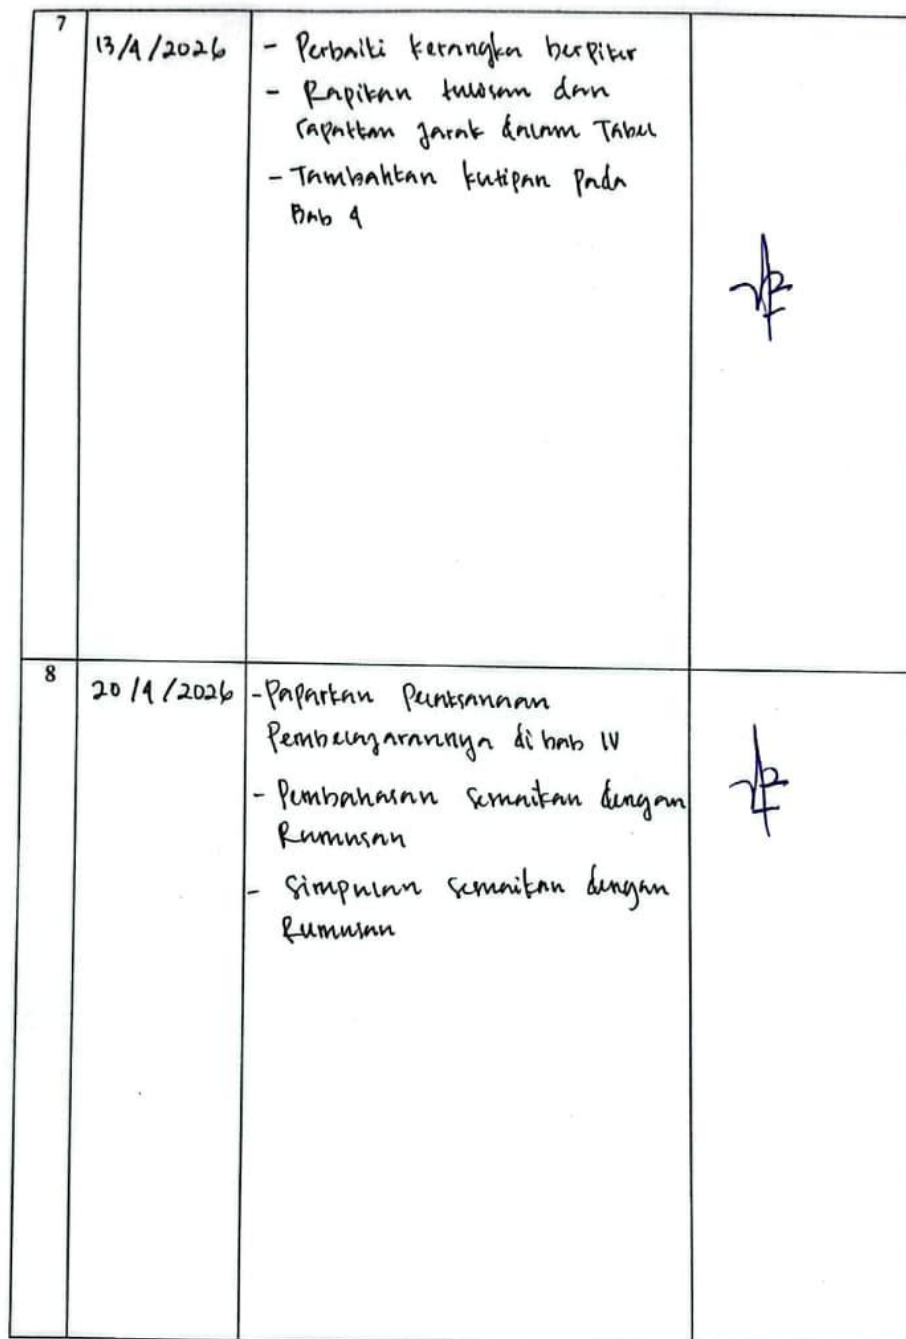 7
13/4/2026
- Perbaiki kerangka berpikir
- Rapikan tulisan dan
rapatkan jarak dalam Tabel
- Tambahkan kutipan pada
Bab 4
8
20/4/2026
- Paparkan Pelaksanaan
Pembelajarannya di bab IV
- Pembahasan sesuaikan dengan
Rumusan
- Simpulan sesuaikan dengan
Rumusan